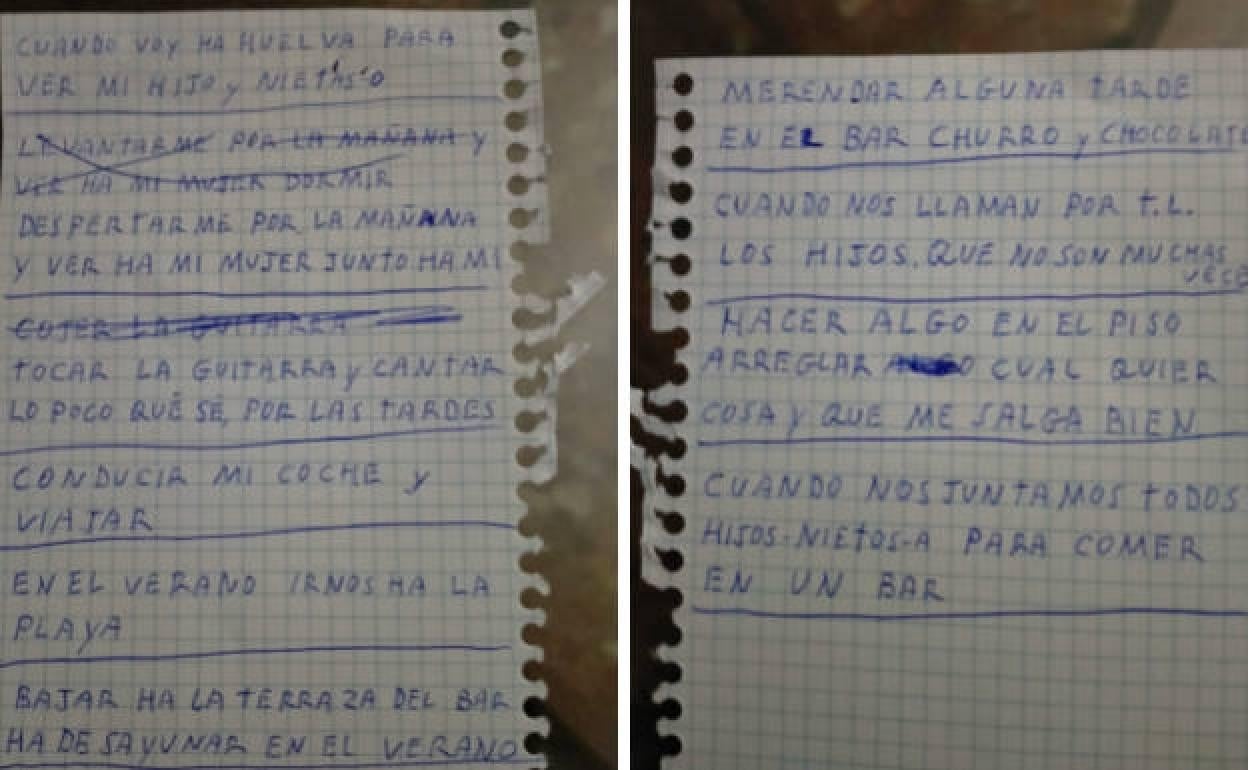 CUANDO VOY HA HUELVA PARA
VER MI HIJO y NIETAS'O
LEVANTARME POR LA MAÑANA y
VER HA MI MUJER DORMIR
DESPERTARME POR LA MAÑANA
Y VER HA MI MUJER JUNTO HA MI
COJER LA GUITARRA
TOCAR LA GUITARRA y CANTAR
LO POCO QUÉ SÉ, POR LAS TARDES
CONDUCIR MI COCHE y
VIAJAR
EN EL VERANO IRNOS HA LA
PLAYA
BAJAR HA LA TERRAZA DEL BAR
HA DESAYUNAR EN EL VERANO
MERENDAR ALGUNA TARDE
EN EL BAR CHURRO y CHOCOLATE
CUANDO NOS LLAMAN POR T.L.
LOS HIJOS. QUE NO SON MUCHAS
VECE
HACER ALGO EN EL PISO
ARREGLAR ALGO CUAL QUIER
COSA y QUE ME SALGA BIEN
CUANDO NOS JUNTAMOS TODOS
HIJOS-NIETOS-A PARA COMER
EN UN BAR